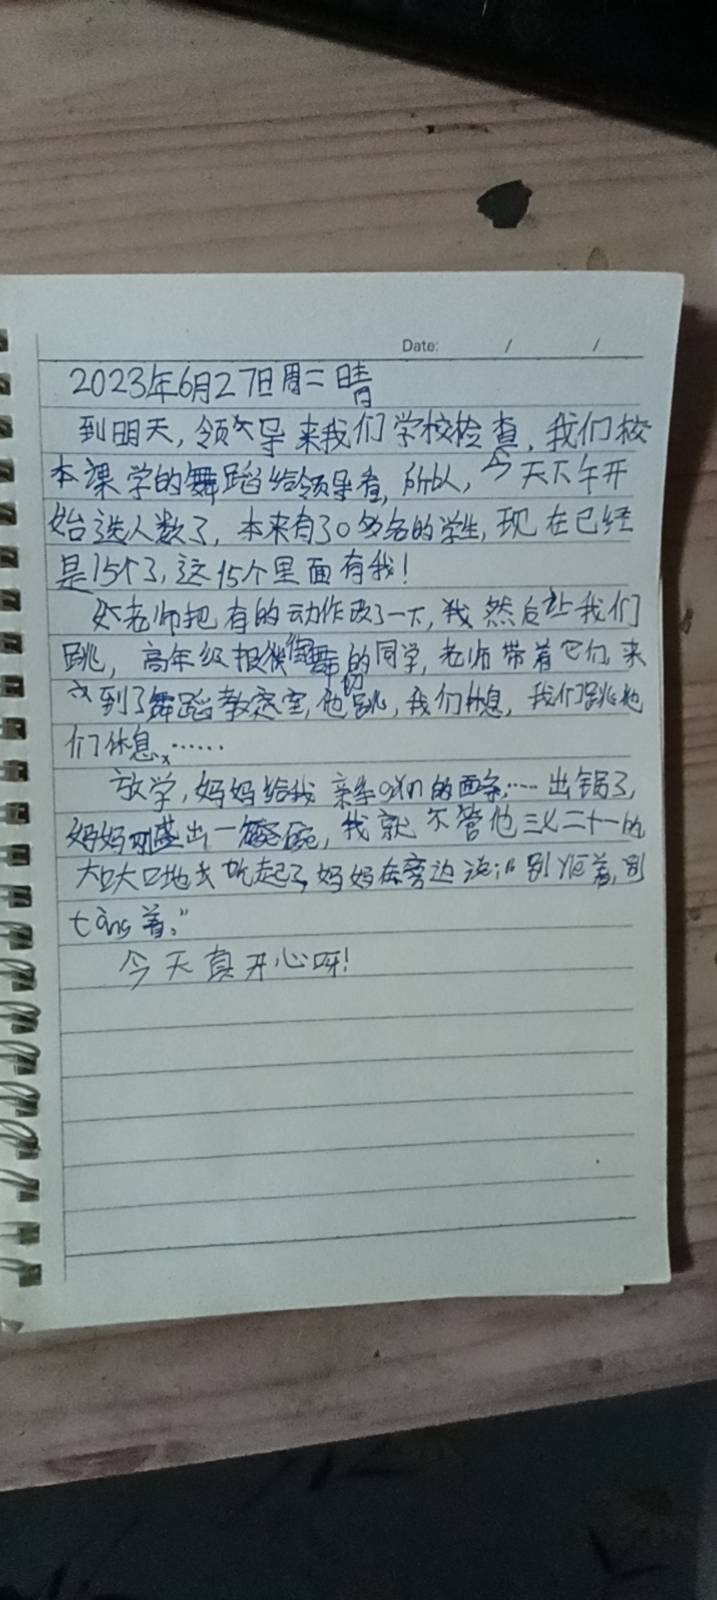 Date: / /
2023年6月27日周二晴
到明天,领导来我们学校检查,我们校
本课学的舞蹈给领导看,所以,今天下午开
始选人数了,本来有30多名的学生,现在已经
是15个了,这15个里面有我!
老师把有的动作改了一下,然后让我们
跳,高年级报街舞的同学,老师带着它们来
到了舞蹈教室,他们跳,我们休息,我们跳他
们休息……
放学,妈妈给我亲手的面条……出锅了,
妈妈刚盛出一碗,我就不管他三七二十一的
大口大口地吃起了,妈妈在旁边说:"别噎着,别
tàng着。"
今天真开心呀!